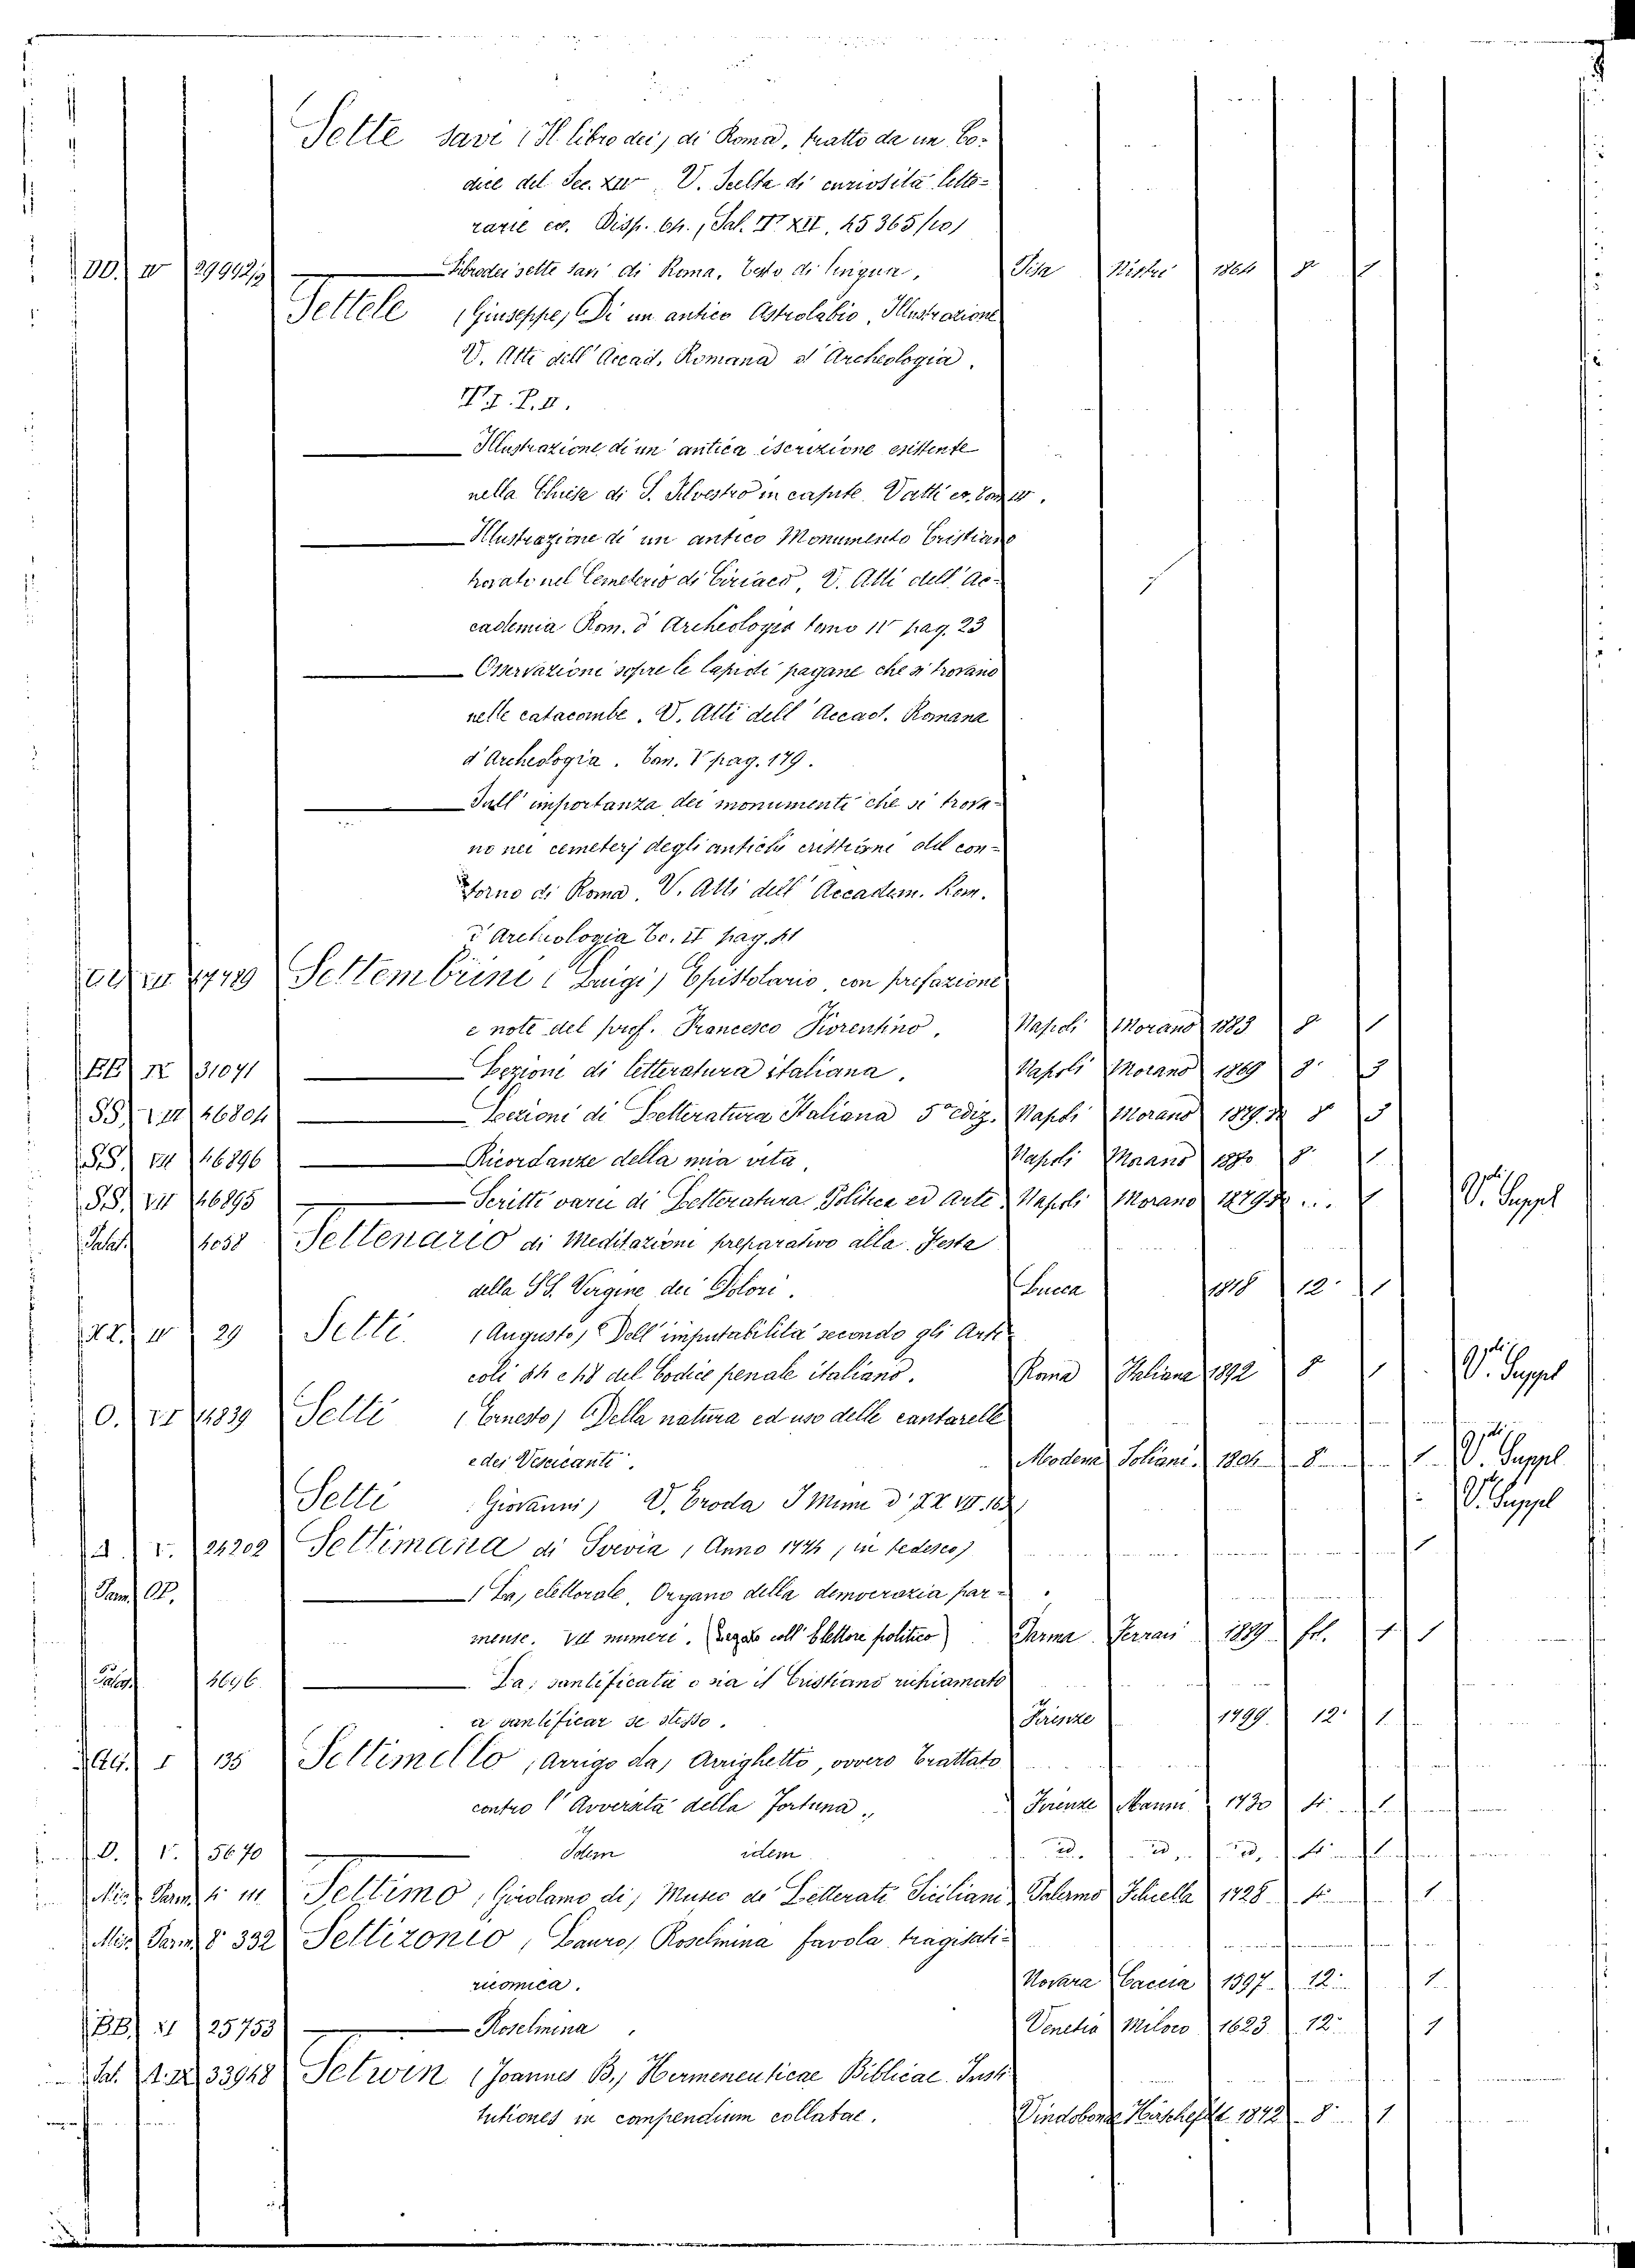 Sette savi (Il libro dei) di Roma, tratto da un Co-
dice del Sec. XIV. V. Scelta di curiosità lette-
rarie ec. Disp. 64. (Sal. XII. 45365/10)
DD. IV 29992/9 Libro dei sette savi di Roma, testo di lingua, Pisa Nistri 1864 8° 1
Settele (Giuseppe) Di un antico Astrolabio, Illustrazione
V. Atti dell' Accad. Romana d' Archeologia.
T. I. P. II.
Illustrazione di un' antica iscrizione esistente
nella Chiesa di S. Silvestro in capite. V. atti ec.
Illustrazione di un antico Monumento Cristiano
trovato nel Cemeterio di Ciriaco, V. Atti dell' Ac-
cademia Rom. d' Archeologia tomo II pag. 23
Osservazioni sopra le lapidi pagane che si trovano
nelle catacombe. V. Atti dell' Accad. Romana
d' Archeologia. Tom. V pag. 179.
Sull' importanza dei monumenti che si trova-
no nei cemeterj degli antichi cristiani del con-
torno di Roma. V. Atti dell' Accadem. Rom.
d' Archeologia To. II pag. 41
17729 Settembrini (Luigi) Epistolario, con prefazione
e note del prof. Francesco Fiorentino. Napoli Morano 1883 8° 1
BB IV 31071 Lezioni di letteratura italiana. Napoli Morano 1869 8° 3
SS. VII 46804 Lezioni di Letteratura Italiana 5ª ediz. Napoli Morano 1879. 8 3
SS. VII 46896 Ricordanze della mia vita, Napoli Morano 1880 8° 1
SS. VII 46895 Scritti varii di Letteratura Politica ed Arte. Napoli Morano 1879 ... 1 V. li Suppl
Palat. 4058 Settenario di Meditazioni preparativo alla Festa
della SS. Vergine dei Dolori. Lucca 1818 12° 1
IV 29 Setti (Augusto) Dell' imputabilità secondo gli Arti-
coli 44 e 48 del Codice penale italiano. Roma Italiana 1892 8 1 V. li Suppl
O. VI 14839 Setti (Ernesto) Della natura ed uso delle cantarelle
e dei Vescicanti. Modena Soliani. 1804 8 1 V. li Suppl
Setti (Giovanni) V. Eroda I Mimi V. li Suppl
A. V. 24202 Settimana di Svevia (Anno 1744, in tedesco) 1
Parm. Of. (La) elettorale, Organo della democrazia par-
mense. VII numeri. (Legato coll' Elettore politico) Parma Ferrari 1889 fol. 1 1
Palat. 4696 (La) santificata o sia il Cristiano richiamato
a santificar se stesso. Firenze 1799. 12° 1
I 135 Settimello (Arrigo da) Arrighetto, ovvero Trattato
contro l' Avversità della Fortuna. Firenze Manni 1730 4° 1
D. V. 5670 Idem idem id. id. id. 4° 1
Mis. Parm. 4° 111 Settimo (Girolamo di) Museo de' Letterati Siciliani Palermo 1728 4° 1
Mis. Parm. 8° 332 Settizonio (Lauro) Roselmina favola tragisati-
ricomica. Novara Caccia 1597. 12° 1
BB. XI 25753 Roselmina. Venetia Miloco 1623 12° 1
Pal. 33948 Setwin (Joannes B.) Hermeneuticae Biblicae Insti-
tutiones in compendium collatae. Vindobonae 1842 8° 1